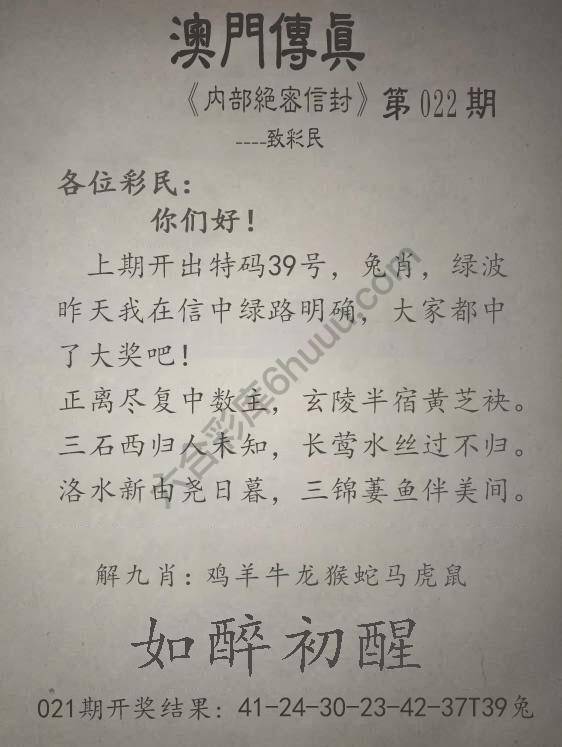 澳門傳眞
《内部絕密信封》第022期
----致彩民
各位彩民：
你们好！
上期开出特码39号，兔肖，绿波
昨天我在信中绿路明确，大家都中
了大奖吧！
正离尽复中数主，玄陵半宿黄芝袂。
三石西归人未知，长莺水丝过不归。
洛水新由尧日暮，三锦萋鱼伴美间。
解九肖：鸡羊牛龙猴蛇马虎鼠
如醉初醒
021期开奖结果：41-24-30-23-42-37T39兔
六合彩库6huuu.com